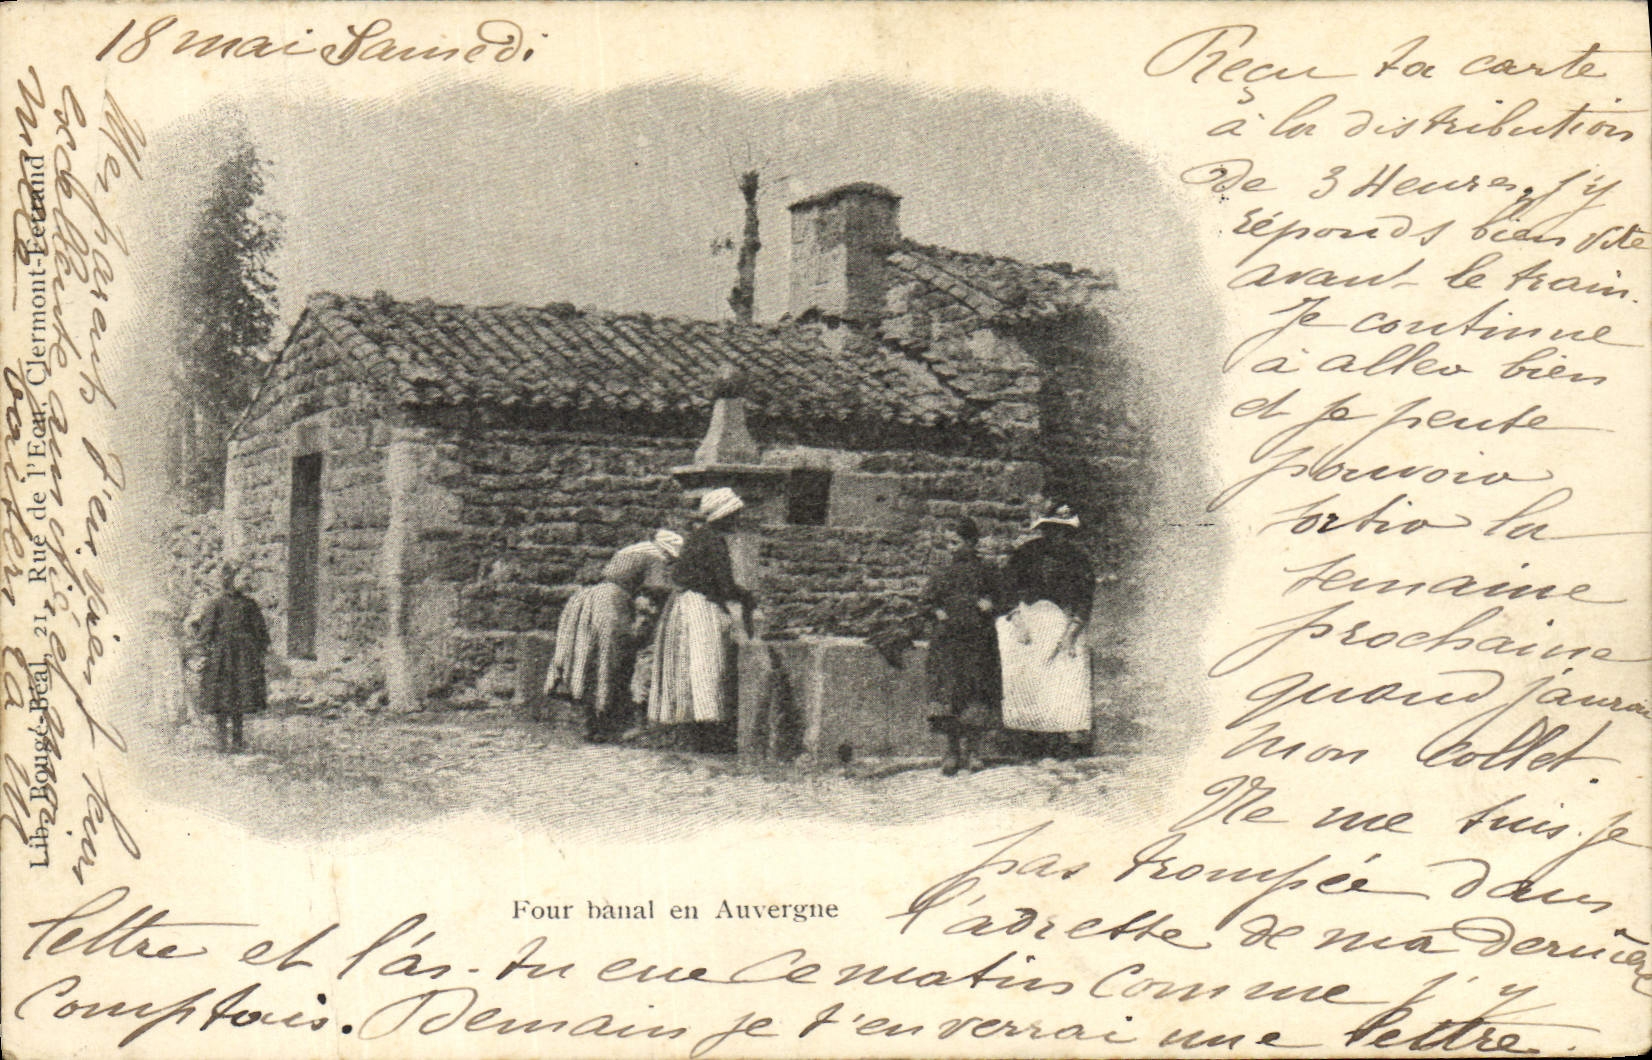 18 mai Samedi
Reçu ta carte
à la distribution
de 3 Heures, j'y
réponds bien vite
avant le train.
Je continue
à aller bien
et je pense
pouvoir
sortir la
semaine
prochaine
quand j'aurai
mon collet.
Ne me suis-je
pas trompée dans
l'adresse de ma dernière
lettre et l'as-tu eue ce matin comme j'y
comptais. Demain je t'enverrai une lettre.
Four banal en Auvergne
Mes parents t'envoient leurs
et mon
mille
baisers
Lib. Bougé-Béal, 21, Rue de l'Eau, Clermont-Ferrand